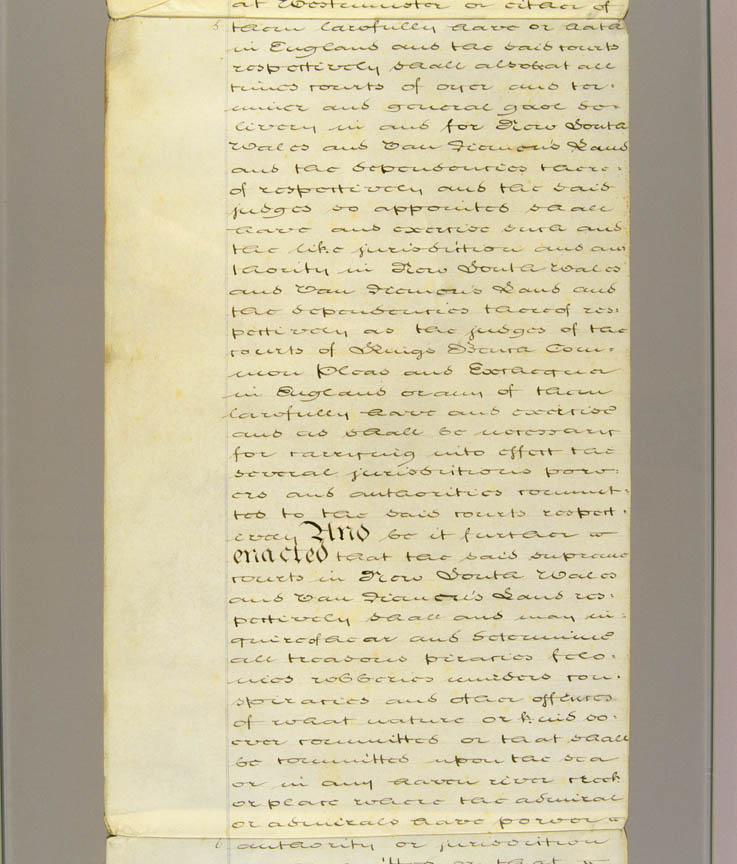 at Westminster or either of
5 them lawfully have or hath
in England and the said courts
respectively shall also at all
times courts of oyer and ter:
miner and general gaol de:
livery in and for New South
Wales and Van Diemen's Land
and the dependencies there:
of respectively and the said
judges so appointed shall
have and exercise such and
the like jurisdiction and au
thority in New South Wales
and Van Diemen's Land and
the dependencies thereof res:
pectively as the judges of the
courts of Kings Bench Com:
mon Pleas and Exchequer
in England or any of them
lawfully have and exercise
and as shall be necessary
for carrying into effect the
several jurisdictions pow:
ers and authorities commit:
ted to the said courts respect:
ively And be it further
enacted that the said supreme
courts in New South Wales
and Van Diemen's Land res:
pectively shall and may in:
quire of hear and determine
all treasons piracies felo:
nies robberies murders con:
spiracies and other offences
of what nature or kind so:
ever committed or that shall
be committed upon the sea
or in any haven river creek
or place where the admiral
or admirals have power
6 authority or jurisdiction
or that